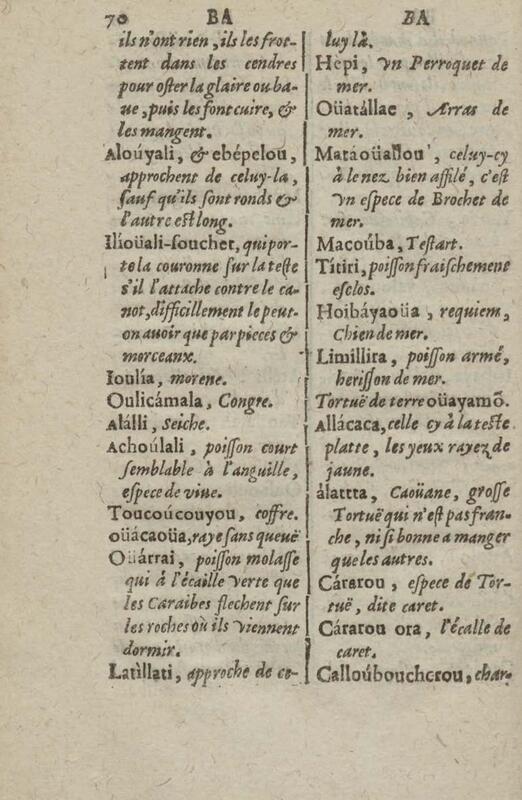 70 BA
ils n'ont rien, ils les frot-
tent dans les cendres
pour oster la glaire ou ba-
ue, puis les font cuire, &
les mangent.
Aloúyali, & ebépelou,
approchent de celuy-la,
sauf qu'ils sont ronds &
l'autre est long.
Ilíoüali-souchet, qui por-
te la couronne sur la teste
s'il l'attache contre le ca-
not, difficillement le peut-
on auoir que par pieces &
morceaux.
Ioulía, morene.
Oulicámala, Congre.
Alálli, Seiche.
Achoúlali, poisson court
semblable à l'anguille,
espece de viue.
Toucoúcouyou, coffre.
oüácaoüa, raye sans queuë
Oüárrai, poisson molasse
qui à l'écaille verte que
les Caraibes flechent sur
les roches où ils viennent
dormir.
Latìllati, approche de ce-
BA
luy là.
Hepi, vn Perroquet de
mer.
Oüatállae, Arras de
mer.
Matáoüallou', celuy-cy
à le nez bien affilé, c'est
vn espece de Brochet de
mer.
Macoúba, Testart.
Títiri, poisson fraischement
esclos.
Hoibáyaoüa, requiem,
Chien de mer.
Limillira, poisson armé,
herisson de mer.
Tortuë de terre oüayamõ.
Allácaca, celle cy à la teste
platte, les yeux rayez de
jaune.
álattta, Caoüane, grosse
Tortuë qui n'est pas fran-
che, ni si bonne a manger
que les autres.
Cárarou, espece de Tor-
tuë, dite caret.
Cárarou ora, l'écalle de
caret.
Calloúboucherou, char-